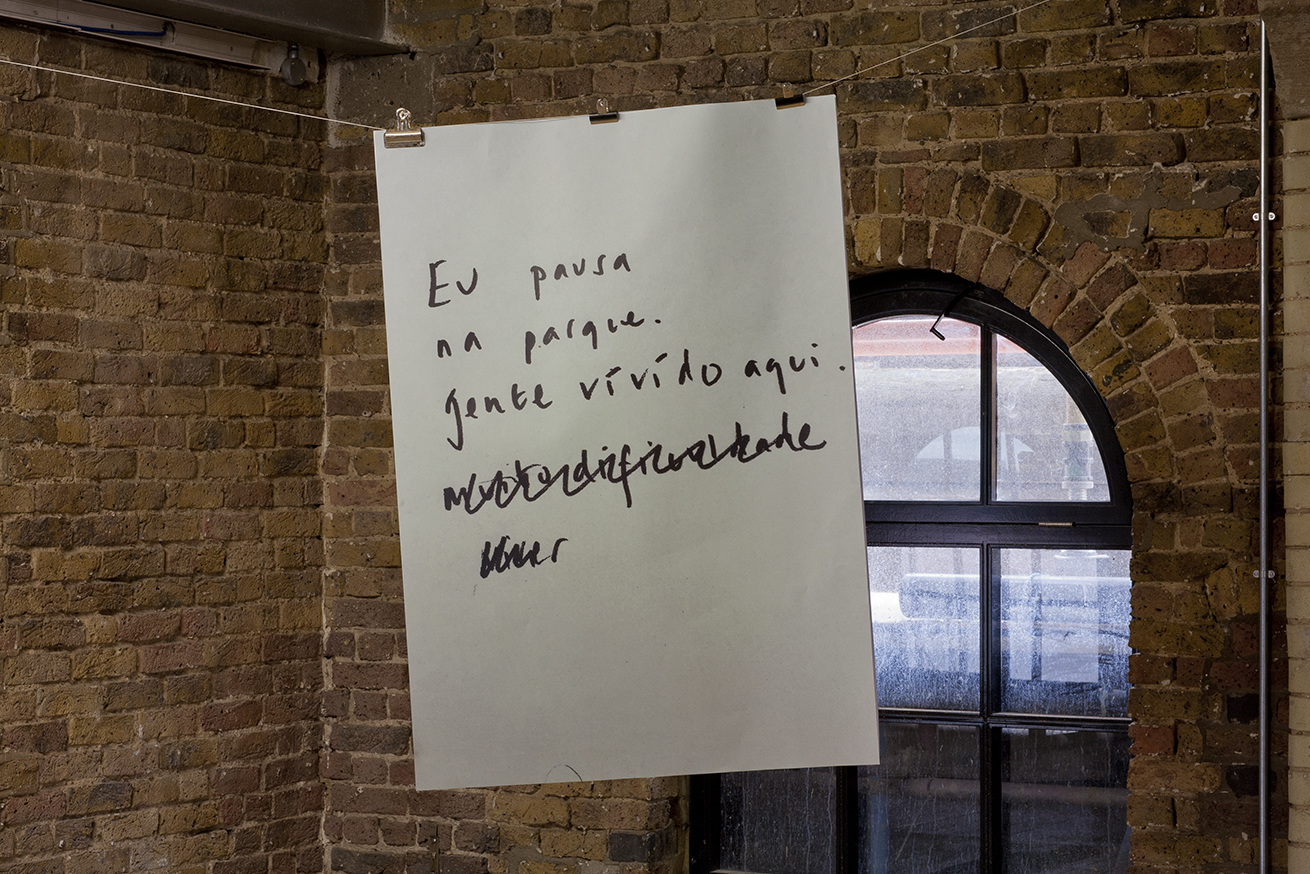 Eu pausa
na parque.
gente vívído aqui.